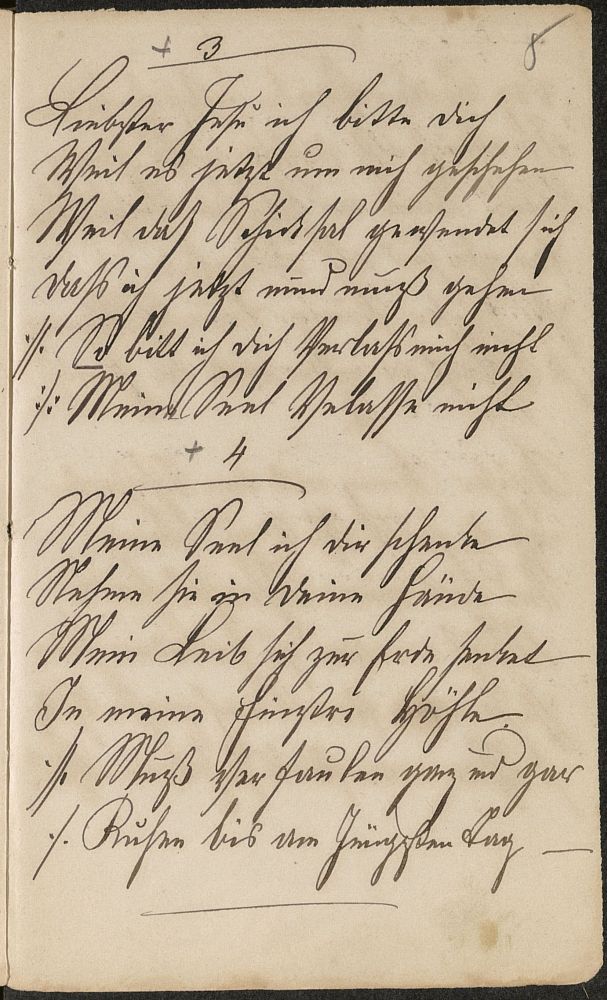 + 3
8
Liebster Jesu ich bitte dich
Weil es jetzt um mich geschehen
Weil das Schicksal gewendet sich
dass ich jetzt und muß gehen
:/: So bitt ich dich Verlass mich nicht
:/: Meine Seel Velasse nicht
+ 4
Meine Seel ich dir schenke
Nehme sie in deine Hände
Mein Leib sich zur Erde senket
In meine finstre Höhle.
:/: Muß Verfaulen ganz und gar
:/: Ruhen bis am Jüngsten Tag —